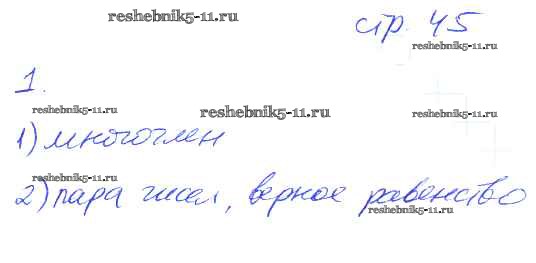 reshebnik5-11.ru стр. 45
reshebnik5-11.ru
1.
reshebnik5-11.ru reshebnik5-11.ru reshebnik5-11.ru
1) многочлен
reshebnik5-11.ru
2) пара чисел, верное равенство
reshebnik5-11.ru